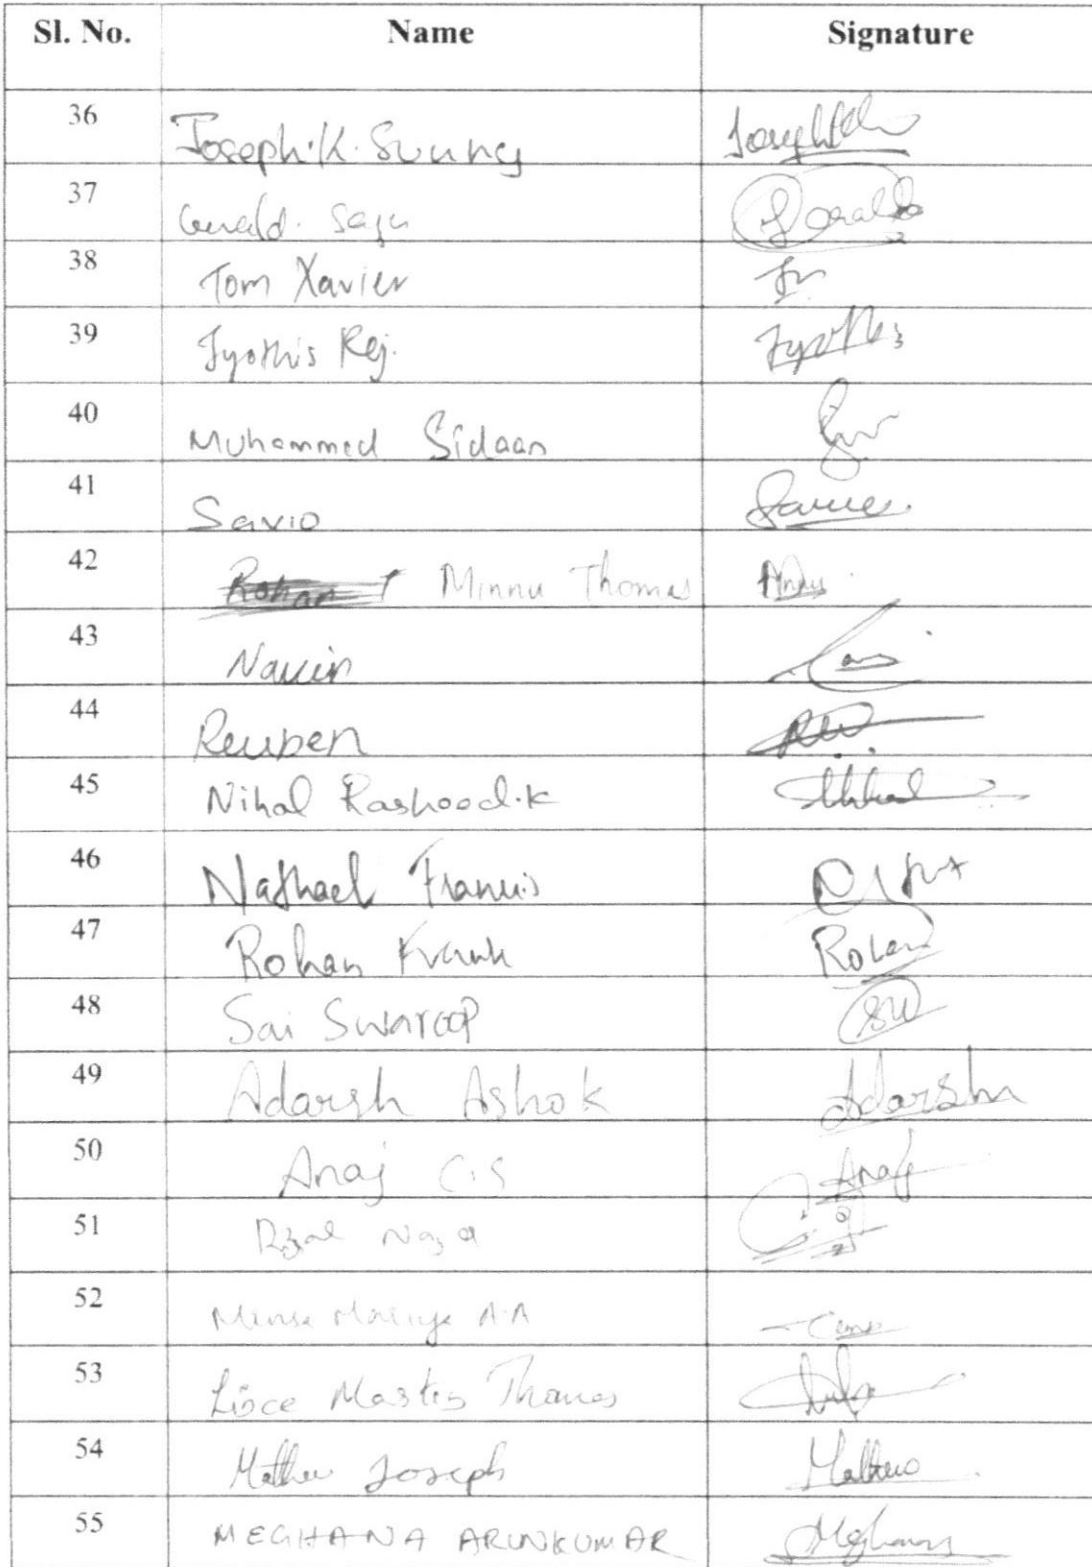 Sl. No. Name Signature
36 Joseph.K.Sunny
37 Gerald. Saju Gerald
38 Tom Xavier
39 Jyothis Rej. Jyothis
40 Muhammed Sidaan
41 Savio
42 Rohan T Minnu Thomas
43 Navin
44 Reuben
45 Nihal Rashood.K Nihal
46 Nathael Francis
47 Rohan Frank Rohan
48 Sai Swaroop
49 Adarsh Ashok Adarsh
50 Anaj C.S Anaj
51
52 A.A
53 Thomas
54 Mathew Joseph Mathew
55 MEGHANA ARUNKUMAR Meghana